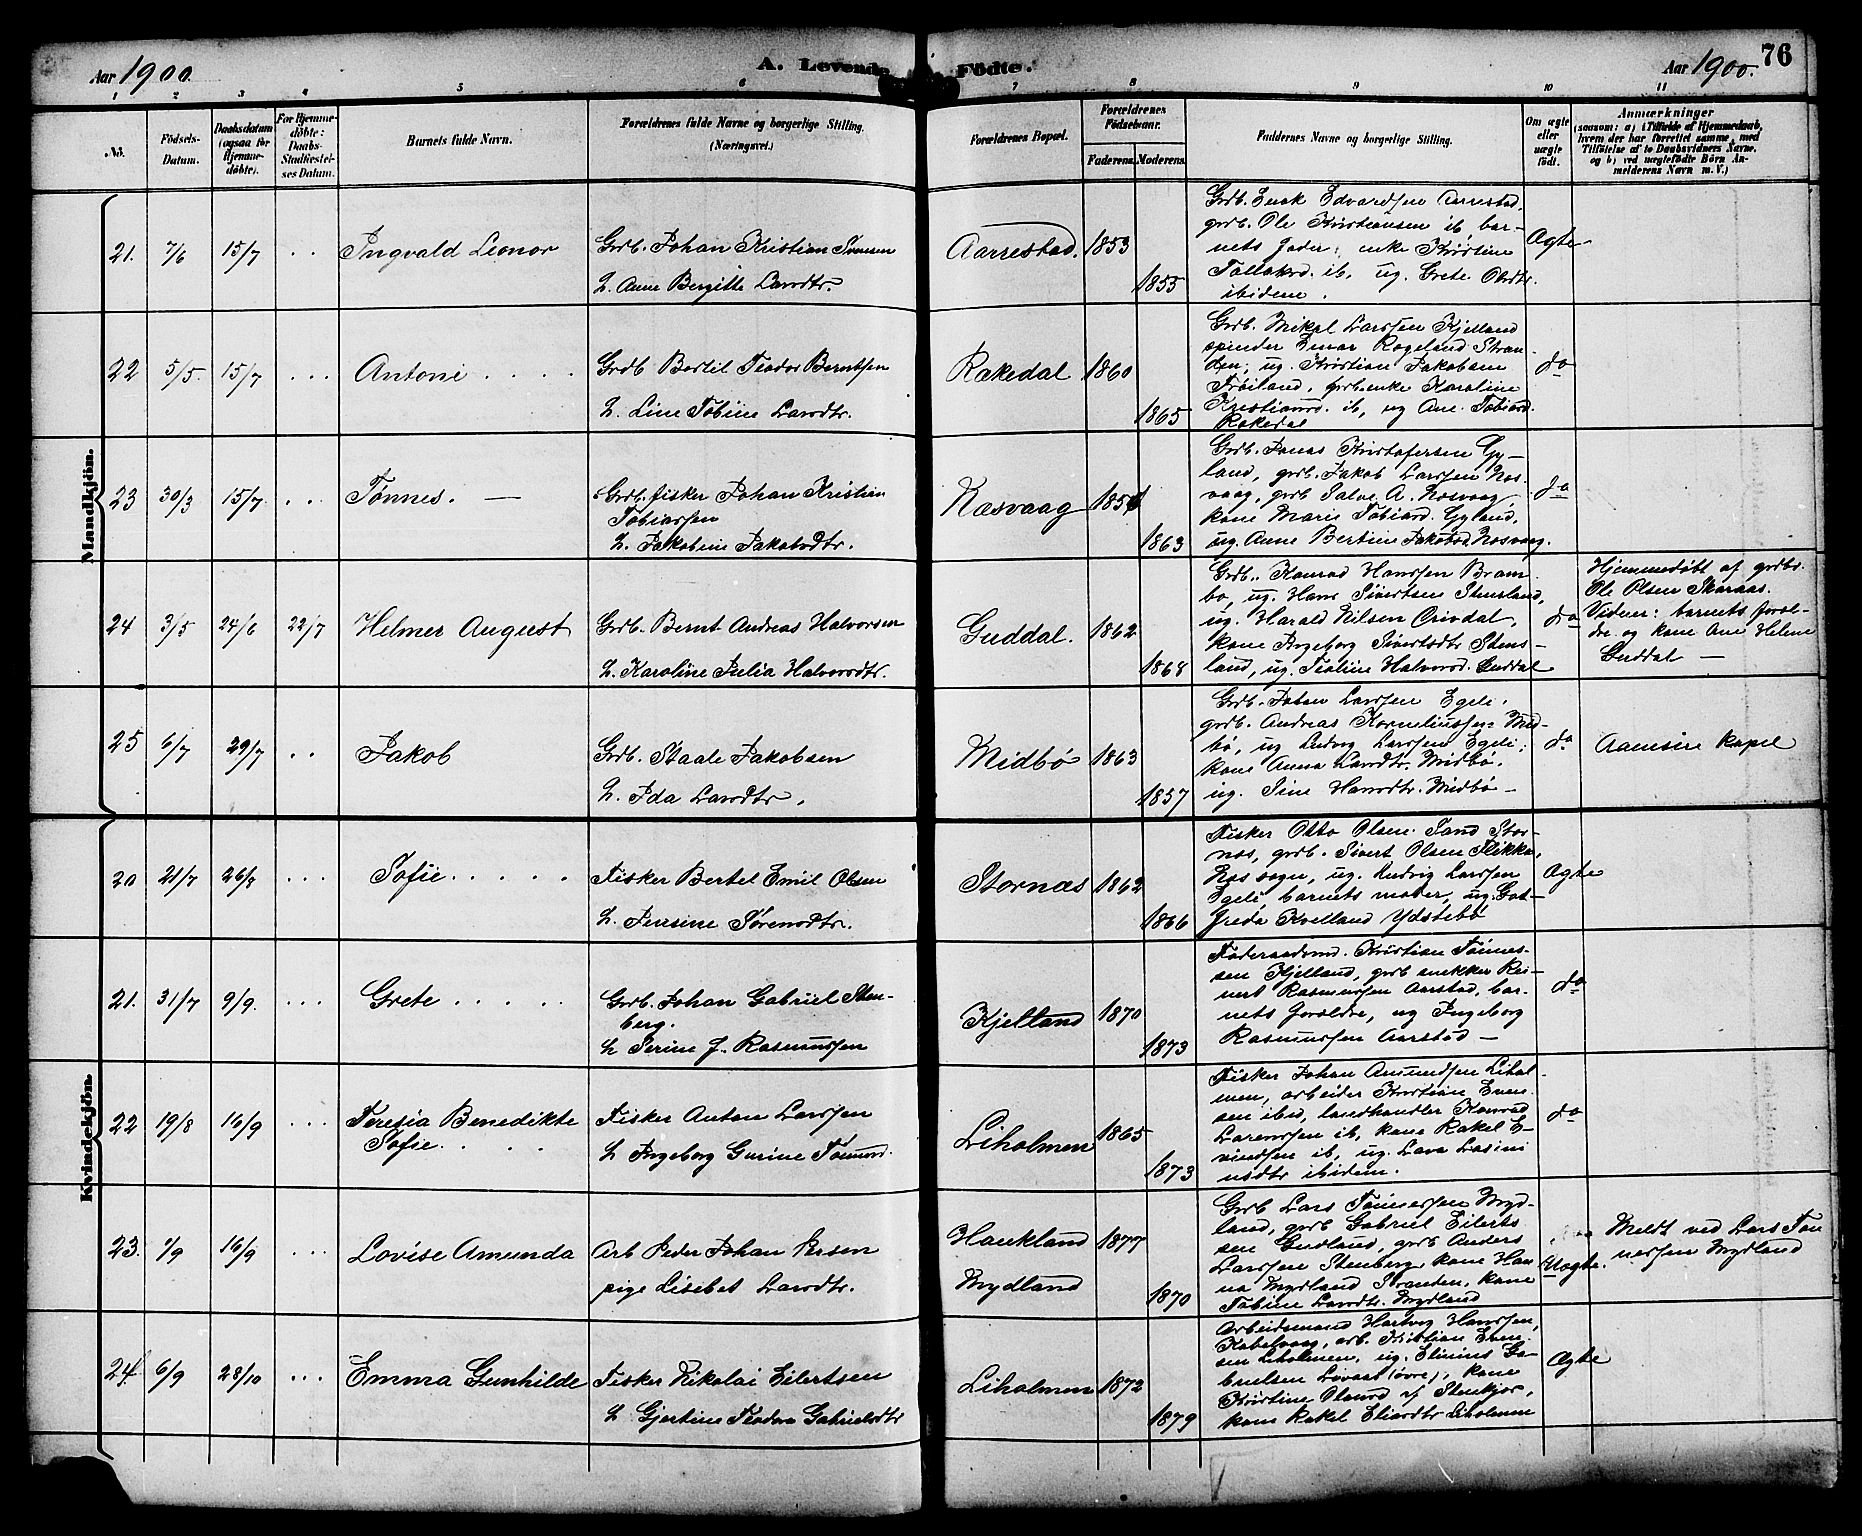 Aar 1900. A. Levende Födte. Aar 1900. 76
1 2 3 4 5 6 7 8 9 10 11
No.
Födsels-
Datum.
Daabsdatum
(ogsaa for
Hjemme-
döbte).
For Hjemme-
döbte:
Daabs-
Stadfæstel-
ses Datum.
Barnets fulde Navn.
Forældrenes fulde Navne og borgerlige Stilling.
(Næringsvei.)
Forældrenes Bopæl.
Forældrenes
Födselsaar.
Faderens. Moderens.
Faddernes Navne og borgerlige Stilling.
Om ægte
eller
uægte
födt.
Anmærkninger
(saasom: a) i Tilfælde af Hjemmedaab,
hvem der har forrettet samme, med
Tilföielse af to Daabsvidners Navne,
og b) ved uægtefödte Börn An-
melderens Navn m. V.)
Mandkjön.
21. 7/6 15/7 . . Ingvald Leonor
Grdb. Johan Kristian Tønnesen
h. Anne Bergitte Larsdtr.
Aarrestad. 1853
1855
Grdb. Enok Edvardsen Aarrestad,
grdb. Ole Kristiansen ib, bar-
nets fader, enke Kristine
Tollaksd. ib, ug. Grete Olsdtr.
ibidem.
Ægte
22 5/5. 15/7 . . . Antoni . . . .
Grdb Bertil Teodor Berntsen
h. Line Tobine Larsdtr.
Rakedal 1860
1865
Grdb. Mikal Larssen Kjelland
spinder Einar Rogeland Stran-
den, ug. Kristian Jakobsen
Frøiland, grdb.enke Karoline
Kristiansd. ib, ug Ane Tobiasd.
Rakedal
do
23 30/3 15/7. . . Tønnes. —
Grdb. fisker Johan Kristian
Tobiassen
h. Jakobine Jakobsdtr.
Næsvaag 1856
1863
Grdb. Jonas Kristofersen Gy-
land, grdb. Jakob Larssen Næs-
vaag, grdb Salve A. Næsvaag
kone Marie Tobiasd. Gyland,
ug. Anne Bertine Jakobsd Næsvaag.
do
24 3/5 24/6 22/7 Helmer August
Grdb. Bernt Andreas Halvorsen
h. Karoline Julia Halvorsdtr.
Guddal. 1862
1868
Grdb. Konrad Hanssen Bram-
bo, ug. Hans Sivertsen Stensland,
ug. Harald Nilsen Orrvdal,
kone Ingeborg Sivertsdtr Stens-
land, ug. Tealine Halvorsd. Guddal
do
Hjemmedøbt af grdbr.
Ole Olsen Skaraas.
Vidner: barnets foræl-
dre og kone Ane Helene
Guddal —
25 6/7 29/7 . . Jakob
Grdb. Staale Jakobsen
h. Ida Larsdtr.
Midbø 1863
1857
Grdb. Johan Larssen Egeli,
grdb. Andreas Korneliussen Mid-
bø, ug Ludvig Larssen Egeli,
kone Anna Larsdtr. Midbø.
ug. Sine Hansdtr. Midbø —
do
Aamsire kapel
Kvindekjön.
20 21/7 26/8 . . . Sofie . . . . .
Fisker Bertel Emil Olsen
h. Jensine Sørensdtr.
Stornæs 1862
1866
Fisker Otto Olsen Sand Stor-
næs, grdb. Sivert Olsen Flikka,
Næs sogn, ug. Ludvig Larssen
Egeli, barnets moder, ug. Got-
freda Kvelland Ydstebø
Ægte
21. 31/7 9/9. . . . Grete . . . . .
Grdb. Johan Gabriel Sten-
berg.
h Serine J. Rasmussen
Kjelland 1870
1873
Føderaadsmd. Kristian Tønnes-
sen Kjelland, grdb snekker Rei-
nert Rasmussen Aarstad, bar-
nets forældre, ug Ingeborg
Rasmussen Aarstad —
do
22 19/8 16/9 . . . Teresia Benedikte
Sofie. . . . .
Fisker Anton Larssen
h Ingeborg Gurine Tønnesd.
Liholmen 1865
1873
Fisker Johan Amundsen Lihol-
men, arbeider Kristian Even-
sen ibid, landhandler Konrad
Larenssen ib, kone Rakel E-
vindsen ib, ug.
ibidem.
do
23. 1/9 16/9 . . . Lovise Amunda
Arb Peder Johan Persen
pige Lisebet Larsdtr.
Haukland 1877
Mydland 1870
Grdb Lars Tønnessen Myd-
land, grdb Gabriel Eilerts
sen Gudland, grdb Anders
Larssen Stenberg, kone Han
na Mydland Stranden, kone
Tobine Larsdtr. Mydland
Uægte.
Meldt ved Lars Tøn
nessen Mydland
24. 6/9 28/10 . . . Emma Gunhilde
Fisker Nikolai Eilertsen
h. Gjertine Teodora Gabrielsdtr
Liholmen 1872
1879
Arbeidsmand Hartvig Hanssen,
Kabelvaag, arb. Kristian Even-
sen Liholmen, ug. Elinius Ga-
brielsen Løvaas (øvre), kone
Kristine Olausd af Stenkjær,
kone Rakel Eliasdtr Liholmen
Ægte